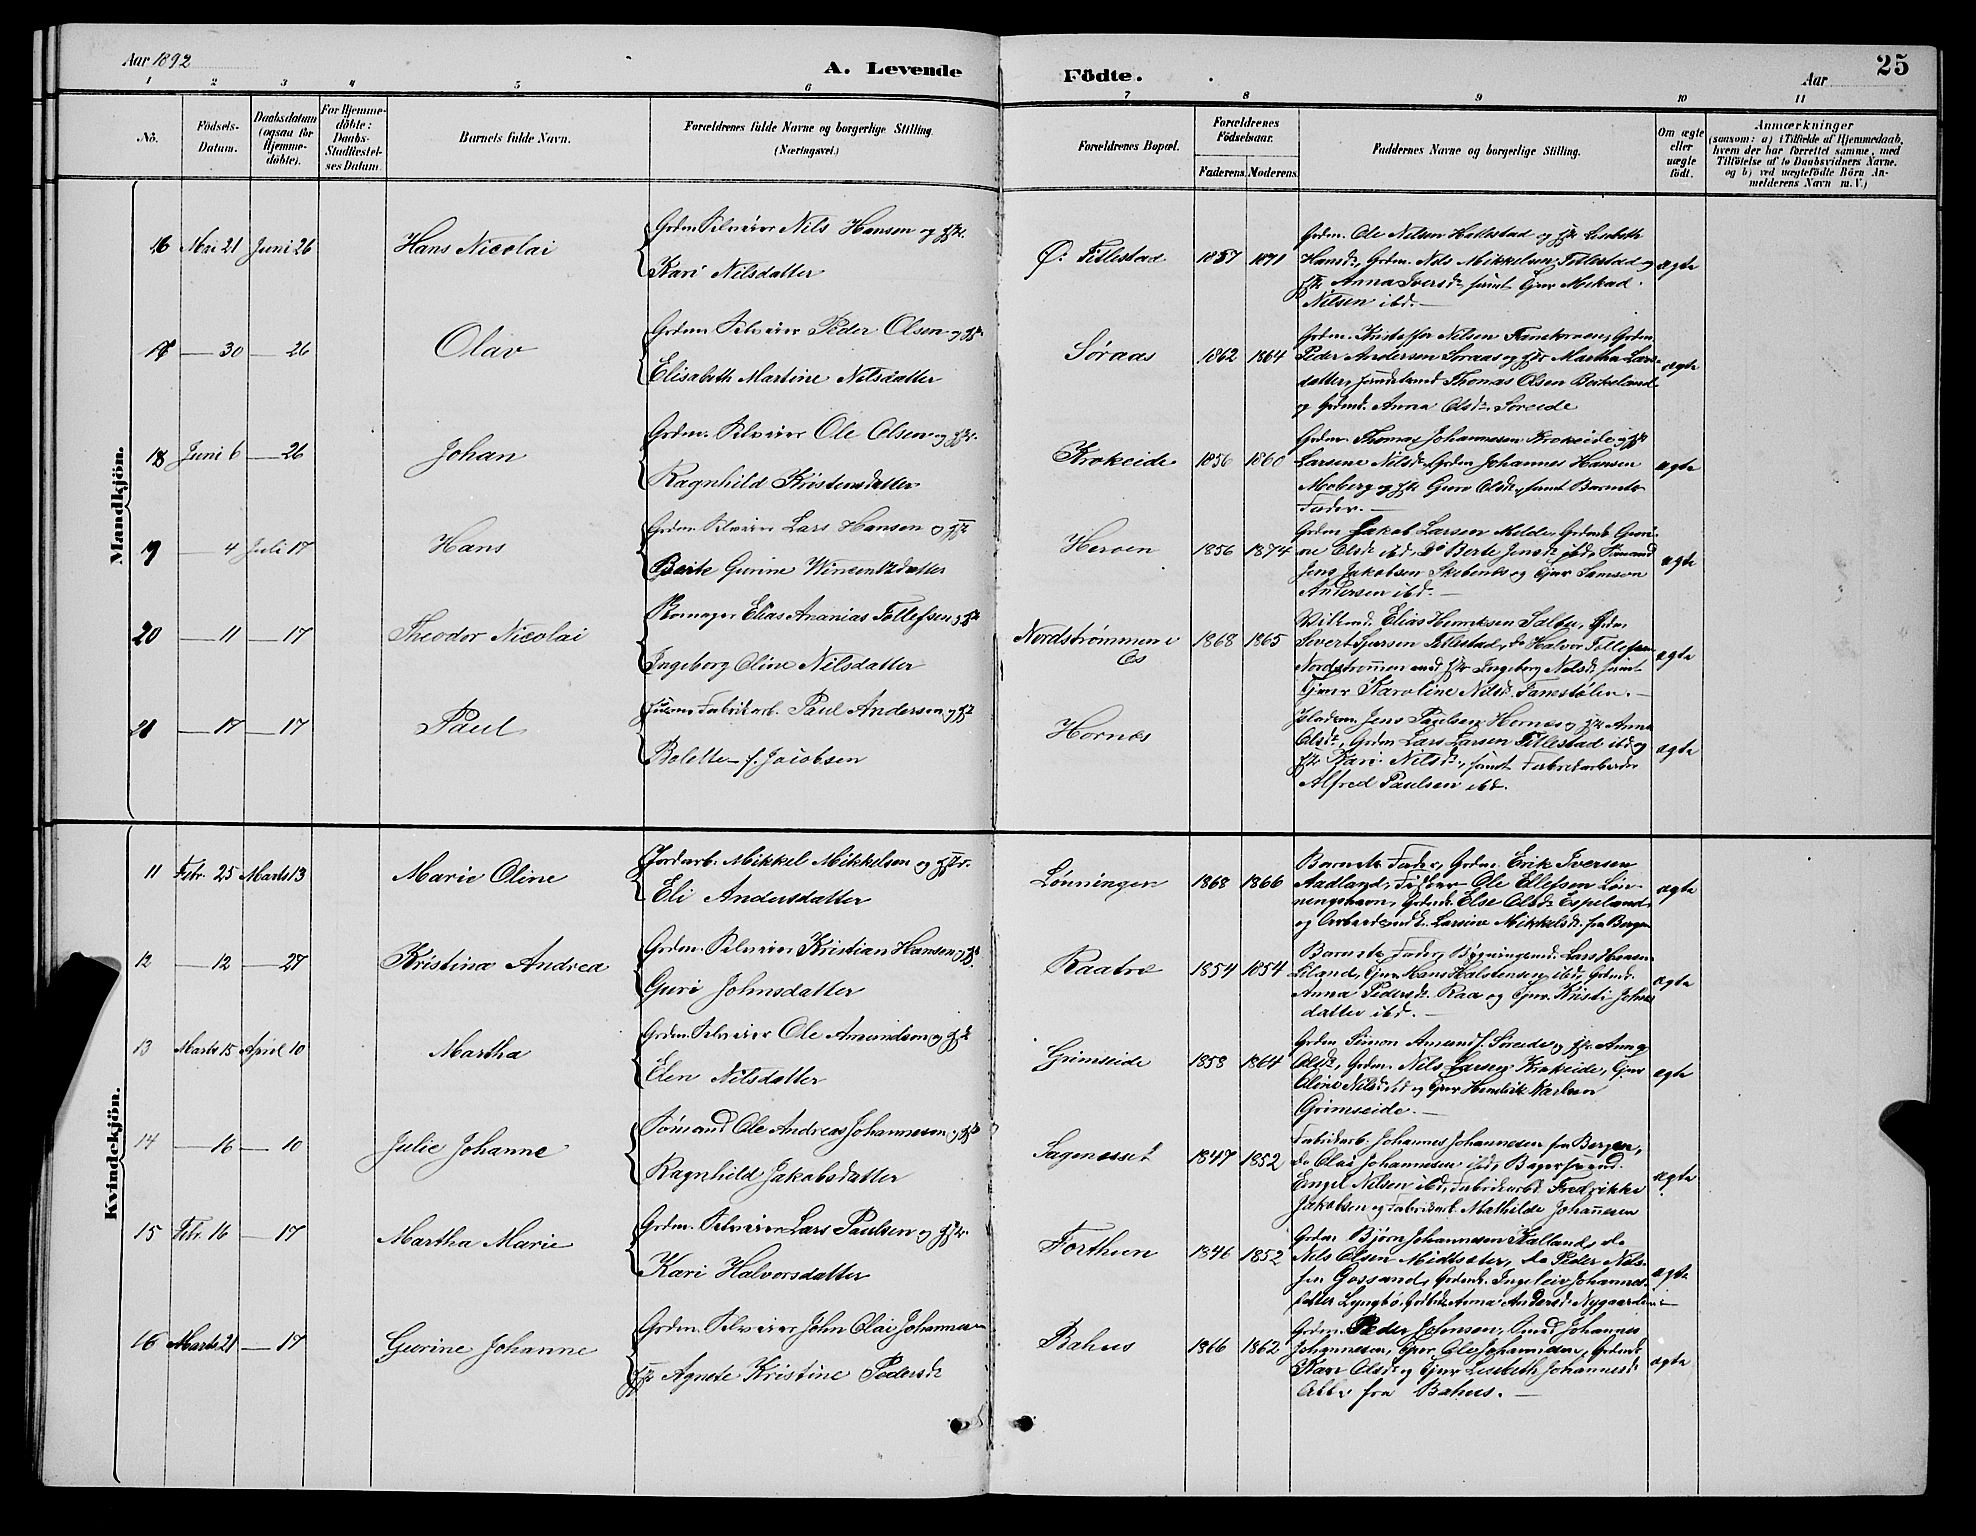 Aar 1892
A. Levende Födte.
Aar
25
1 2 3 4 5 6 7 8 9 10 11
No.
Födsels-Datum.
Daabsdatum (ogsaa for Hjemme-döbte).
For Hjemme-döbte: Daabs-Stadfæstel-ses Datum.
Barnets fulde Navn.
Forældrenes fulde Navne og borgerlige Stilling.
(Næringsvei.)
Forældrenes Bopæl.
Forældrenes Födselsaar.
Faderens. Moderens.
Faddernes Navne og borgerlige Stilling.
Om ægte eller uægte födt.
Anmærkninger
(saasom: a) i Tilfælde af Hjemmedaab, hvem der har forrettet samme, med Tilföielse af to Daabsvidners Navne. og b) ved uægtefödte Börn An-melderens Navn m. V.)
Mandkjön.
16 Mai 21 Juni 26 Hans Nicolai
Grdm. Selveier Nils Hansen og Hst.
Kari Nilsdatter
Ø. Titlestad 1857 1871
Grdm. Ole Nilsen Hatlestad og Hst Lisabeth
Hansdr, Grdm. Nils Mikkelsen Titlestad og
Hst. Anna Iversdr samt Gjær Mikad
Nilsen ibd.
ægte
17 — 30 — 26 Olav
Grdm. Selveier Peder Olsen og Hst.
Elisabeth Martine Nilsdatter
Søraas 1862 1864
Grdm. Kristoffer Nilsen Grdm
Peder Andersen Søraas og Hst Martha Lars-
datter, Thomas Olsen Birkeland
og Grdmd. Anna Olsdr. Søreide
ægte
18 Juni 6 — 26 Johan
Grdm. Selveier Ole Olsen og Hst.
Ragnhild Kristensdatter
Krokeide 1856 1860
Grdm. Thomas Johannesen Krokeide og Hst
Larsine Nilsdr, Grdm Johannes Hansen
Moberg og Hst Guro Olsdr, samt Barnets
Fader.
ægte
19 — 4 Juli 17 Hans
Grdm. Selveier Lars Hansen og Hst
Berte Gurine Vincentzdatter
Herøen 1856 1874
Grdm Jakob Larsen Milde, Grdmd. Guri-
ne Olsdr ibd, Do Berte Jensdr ibd, Sømand
Jens Jakobsen Skibenes og Gjær Samson
Andersen ibd.
ægte
20 — 11 — 17 Theodor Nicolai
Elias Ananias Tollefsen og Hst
Ingeborg Oline Nilsdatter
Nordstrømmen i Os 1868 1865
Elias Henriksen Grdm.
Sivert Titlestad, do Halvor Tollefsen
Nordstrømmen med Hst Ingeborg Nilsdr samt
Gjær Karoline Nilsdr
ægte
21 — 17 — 17 Paul
Fabrikarb. Paul Andersen og Hst
Bolette f. Jacobsen
Hornes
Jens Paulsen Hornes og Hst Anna
Olsdr, Grdm Lars Larsen Titlestad ibd og
Hst Kari Nilsdr, samt Fabrikarbeider
Alfred Paulsen ibd.
ægte
Kvindekjön.
11 Febr. 25 Marts 13 Marie Oline
Jordarb. Mikkel Mikkelsen og Hst.
Eli Andersdatter
Lønningen 1868 1866
Barnets Fader, Grdm. Erik Iversen
Aadland, Ole Ellefsen Løn-
ningshavn, Grdmdr. Else Olsdr Espeland,
og Larsine Mikkelsdr. fra Bergen
ægte
12 — 12 — 27 Kristina Andrea
Grdm. Selveier Kristian Hansen og Hst.
Guri Johnsdatter
Raatræ 1854 1854
Barnets Fader, Bygningsmd. Lars Hansen
Liland, Gjær Hans Halstensen ibd, Grdmd.
Anna Pedersdr. Raa og Gjær. Kristi Johns
datter ibd.
ægte
13 Marts 15 April 10 Martha
Grdm. Selveier Ole Amundsen og Hst
Elen Nilsdatter
Grimseide 1858 1864
Grdm Simon Amunds. Søreide og Hst Anna
Olsdr, Grdm. Nils Larsen Krokeide, Gjær
Oline Nilsdr ibd og Gjær Hendrik Karlsen
Grimseide.
ægte
14 — 16 — 10 Julie Johanne
Sømand Ole Andreas Johannesen og Hst
Ragnhild Jakobsdatter
Sagenesset 1847 1852
Fabrikarb. Johannes Johannesen fra Bergen,
do Olai Johannesen ibd, Bagersvend.
Engel Nilsen ibd, Fabrikarbd Fredrikke
Jakobsen og Fabrikarb. Mathilde Johannesen
ægte
15 Febr. 16 — 17 Martha Marie
Grdm. Selveier Lars Paulsen og Hst.
Kari Halvorsdatter
Forthun 1846 1852
Grdm Bjørn Johannesen Kalland, do
Nils Olsen Midtsæter, do Peder Nils-
sen Gossand, Grdmdr. Ingeleiv Johannes-
datter Lyngbø, Anna Andersdr Nygaarden
ægte
16 Marts 21 — 17 Gurine Johanne
Grdm. Selveier John Olai Johannesen
Hst Agnete Kristine Pedersdr
Bahus 1866 1862
Grdm. Peder Johnsen, Johannes
Johannesen, Gjær Ole Johannesen, Grdmdr.
Kari Olsdr og Gjær Lisbeth Johannesdr
Alle fra Bahus.
ægte